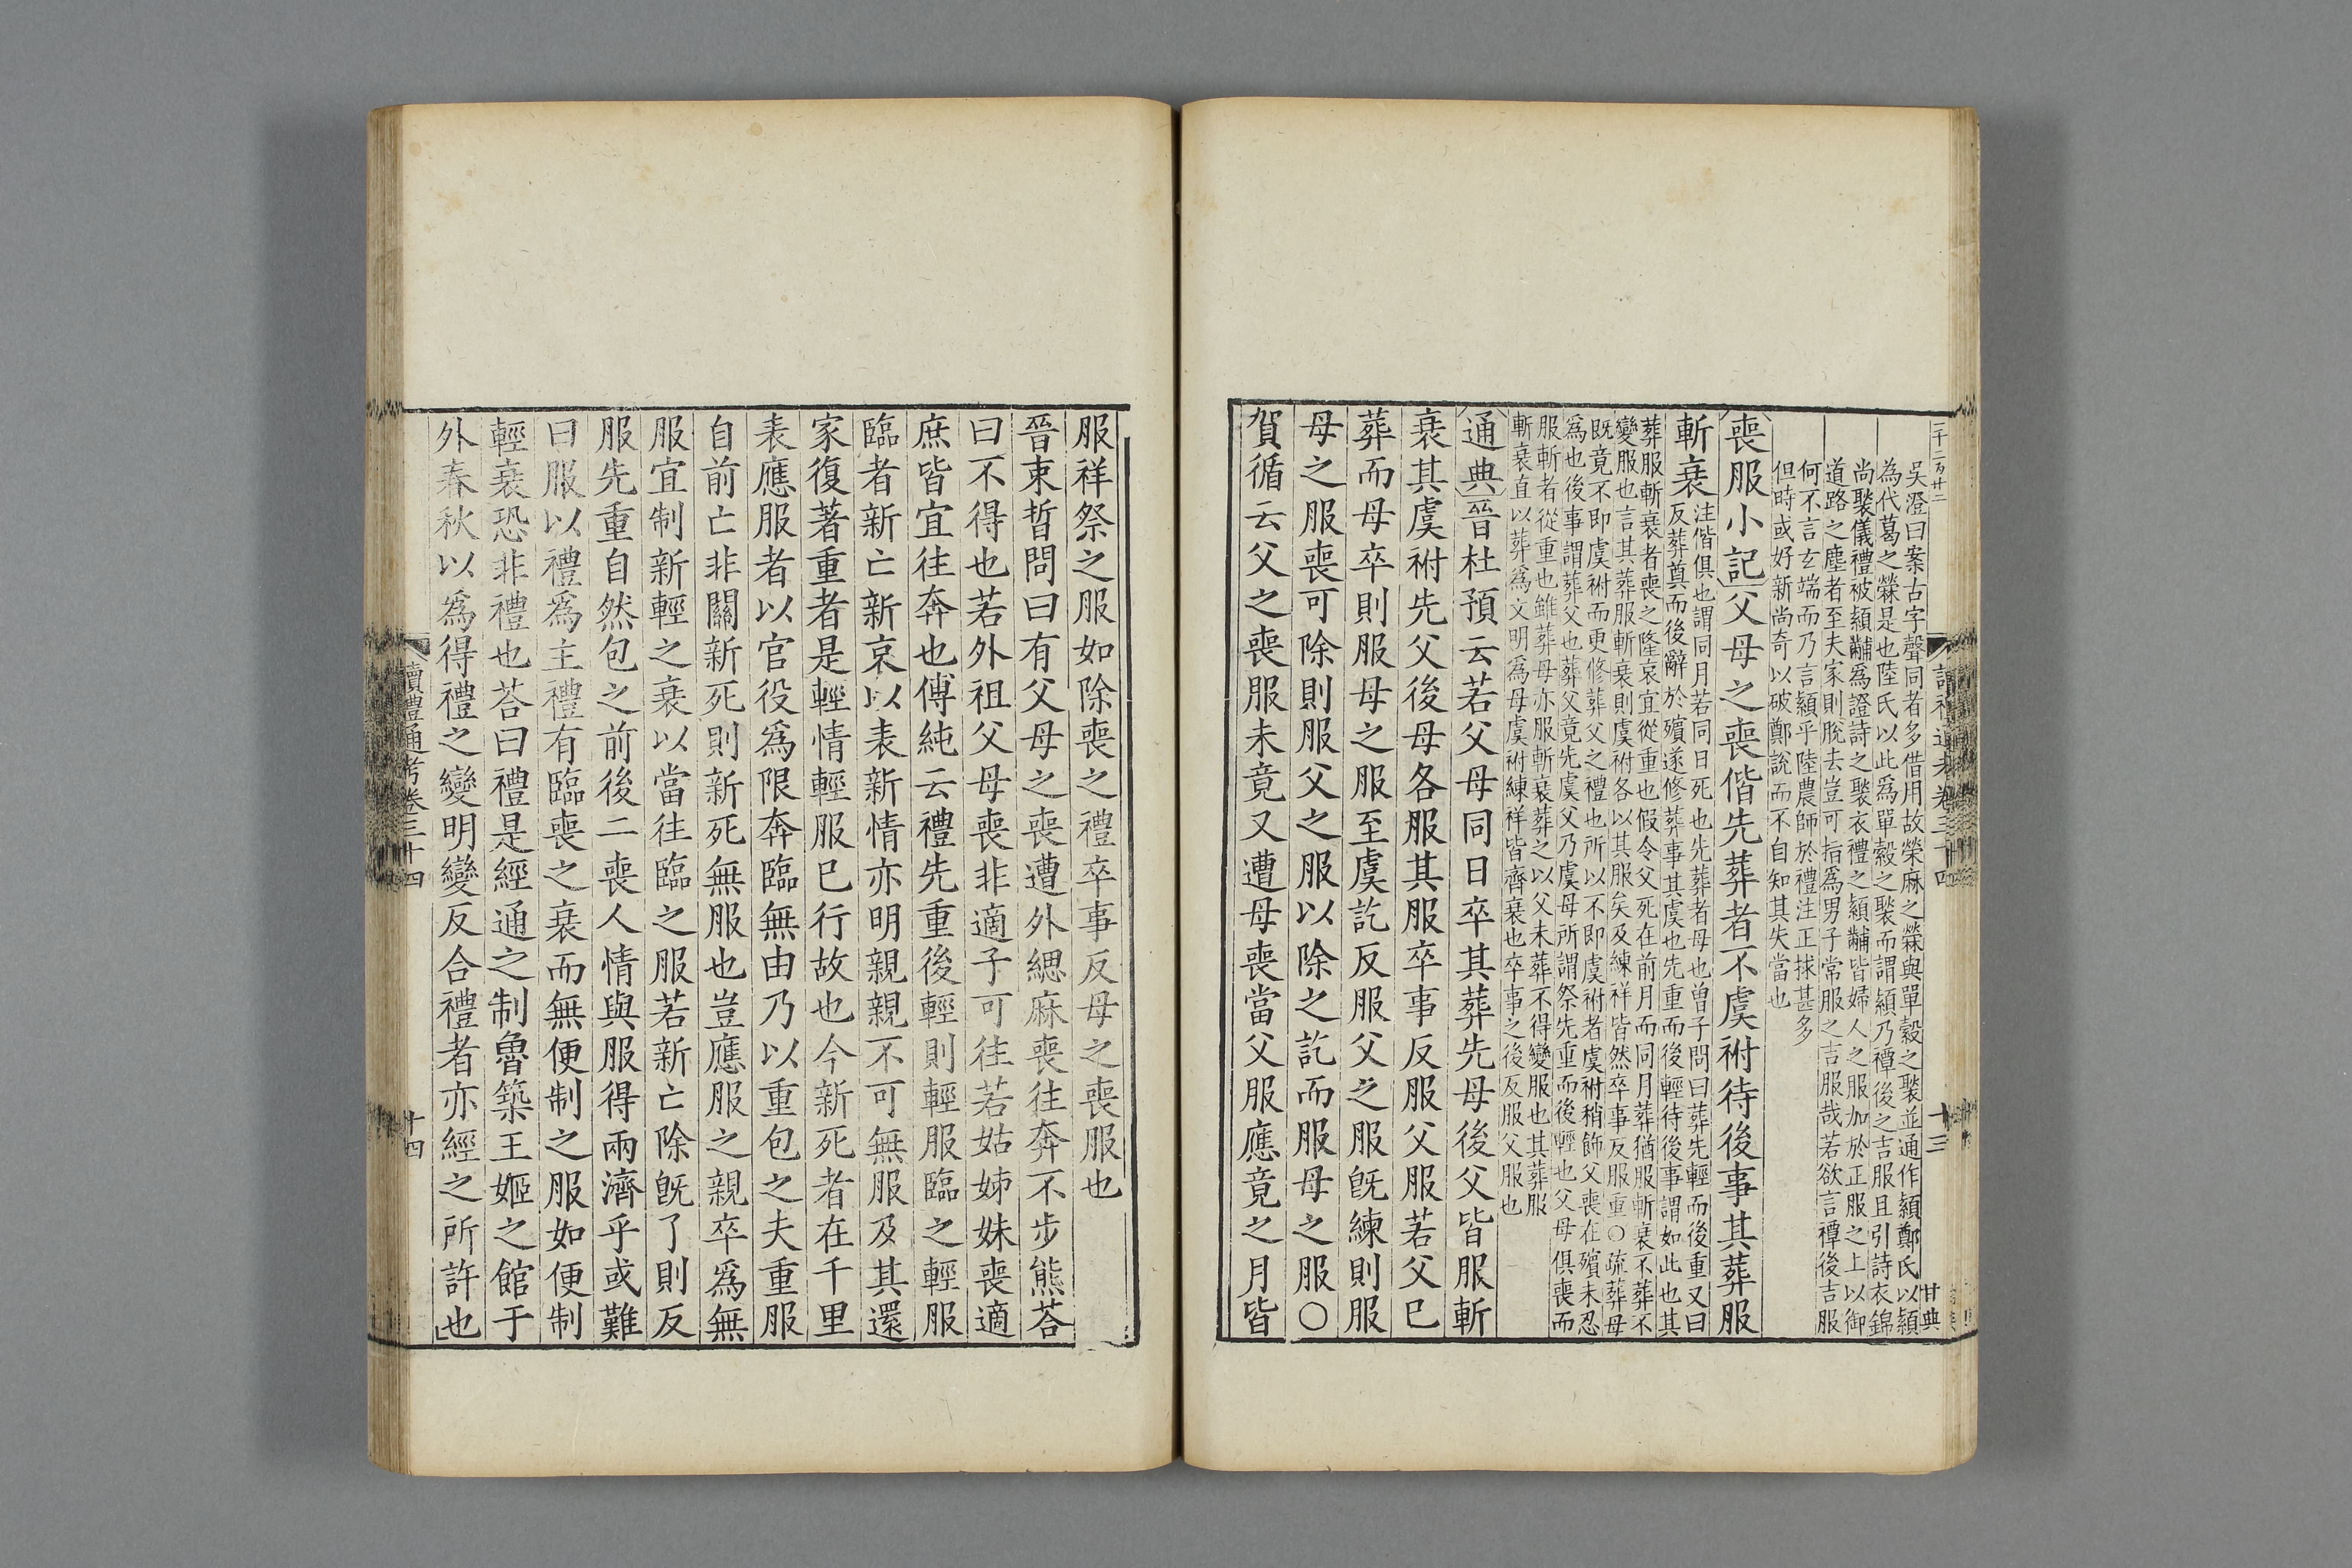 二千二百廿二
讀禮通考卷三十四
十三
甘典
吳澄曰案古字聲同者多借用故榮麻之檾與單縠之褧並通作顈鄭氏以顈
為代葛之檾是也陸氏以此爲單縠之褧而謂顈乃禫後之吉服且引詩衣錦
尚褧儀禮被顈黼爲證詩之褧衣禮之顈黼皆婦人之服加於正服之上以御
道路之塵者至夫家則脫去豈可指爲男子常服之吉服哉若欲言禫後吉服
何不言玄端而乃言顈乎陸農師於禮注正捄甚多
但時或好新尚奇以破鄭說而不自知其失當也
喪服小記父母之喪偕先葬者不虞祔待後事其葬服
斬衰
注偕俱也謂同月若同日死也先葬者母也曽子問曰葬先輕而後重又曰
反葬奠而後辭於殯遂修葬事其虞也先重而後輕待後事謂如此也其
葬服斬衰者喪之隆哀宜從重也假令父死在前月而同月葬猶服斬衰不葬不
變服也言其葬服斬衰則虞祔各以其服矣及練祥皆然卒事反服重○疏葬母
既竟不即虞祔而更修葬父之禮也所以不即虞祔者虞祔稍飾父喪在殯未忍
爲也後事謂葬父也葬父竟先虞父乃虞母所謂祭先重而後輕也父母俱喪而
服斬者從重也雖葬母亦服斬衰葬之以父未葬不得變服也其葬服
斬衰直以葬爲文明爲母虞祔練祥皆齊衰也卒事之後反服父服也
通典晉杜預云若父母同日卒其葬先母後父皆服斬
衰其虞祔先父後母各服其服卒事反服父服若父已
葬而母卒則服母之服至虞訖反服父之服旣練則服
母之服喪可除則服父之服以除之訖而服母之服○
賀循云父之喪服未竟又遭母喪當父服應竟之月皆
服祥祭之服如除喪之禮卒事反母之喪服也
晉束晳問曰有父母之喪遭外緦麻喪往奔不步熊荅
曰不得也若外祖父母喪非適子可往若姑姊妹喪適
庶皆宜往奔也傅純云禮先重後輕則輕服臨之輕服
臨者新亡新哀以表新情亦明親親不可無服及其還
家復著重者是輕情輕服已行故也今新死者在千里
表應服者以官役爲限奔臨無由乃以重包之夫重服
自前亡非關新死則新死無服也豈應服之親卒爲無
服宜制新輕之衰以當往臨之服若新亡除旣了則反
服先重自然包之前後二喪人情與服得兩濟乎或難
曰服以禮爲主禮有臨喪之衰而無便制之服如便制
輕衰恐非禮也荅曰禮是經通之制魯築王姬之館于
外春秋以爲得禮之變明變反合禮者亦經之所許也
讀禮通考卷三十四
十四